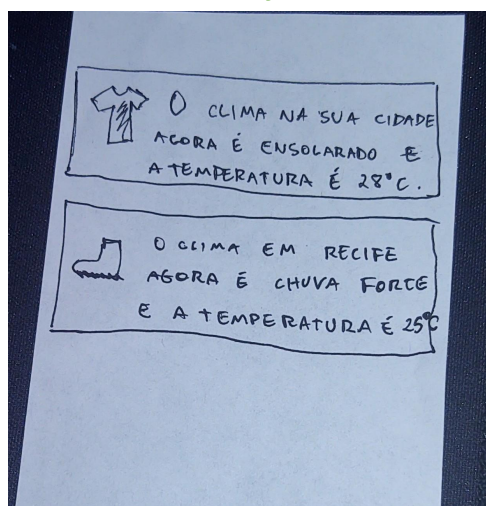 O CLIMA NA SUA CIDADE
AGORA É ENSOLARADO E
A TEMPERATURA É 28°C.
O CLIMA EM RECIFE
AGORA É CHUVA FORTE
E A TEMPERATURA É 25°C